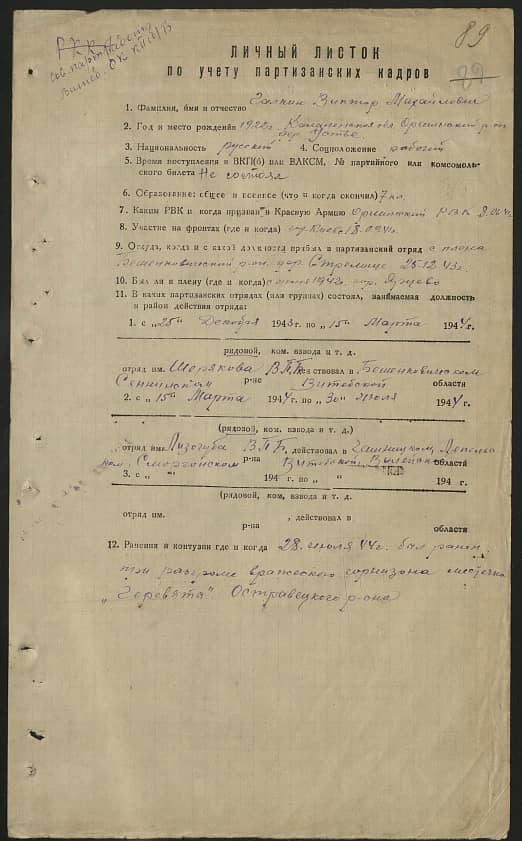 89
ЛИЧНЫЙ ЛИСТОК
по учету партизанских кадров
1. Фамилия, имя и отчество Галкин Виктор Михайлович
2. Год и место рождения 1922г.
3. Национальность русский 4. Соцположение рабочий
5. Время поступления в ВКП(б) или ВЛКСМ, № партийного или комсомоль-
ского билета Не состоял
6. Образование: общее и военное (что и когда окончил) 7 кл.
7. Каким РВК и когда призван в Красную Армию РВК
8. Участие на фронтах (где и когда)
9. Откуда, когда и с какой должности прибыл в партизанский отряд с плена
Бешенковичский р-он. дер. 25.12.43г.
10. Был ли в плену (где и когда) 1942г.
11. В каких партизанских отрядах (или группах) состоял, занимаемая должность
и район действия отряда:
1. с „25" Декабря 1943 г. по „15" Марта 1944 г.
рядовой, ком. взвода и т. д.
отряд им. ВПБ действовал в Бешенковичском
Сеннинском р-не Витебской области
2. с „15" Марта 1944 г. по „30" июля 1944 г.
(рядовой, ком. взвода и т. д.)
отряд им. Лизогуба ВПБ, действовал в Чашницком, Лепель-
ском, Сморгонском р-на Витебской, Вилейской области
3. с „ " 194 г. по „ " 194 г.
(рядовой, ком. взвода и т. д.)
отряд им. , действовал в
р-на области
12. Ранения и контузии где и когда 28 июля 44г. был ранен
при разгроме вражеского гарнизона местечка
„Гервята". Островецкого р-она